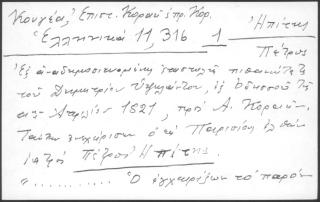 Κουγέας, Ἐπιστ. Κοραῆ πρ. Κορ.
Ἑλληνικά 11, 316 1
Ἠπίτης
Πέτρος
Ἐξ ἀναδημοσιευομένης ἐπιστολῆς πιθανώτατα
τοῦ Δημητρίου Ὑψηλάντου, ἐξ Ὀδησσοῦ τῇ
Ἀπριλίου 1821, πρὸς Ἀ. Κοραῆν.
Ταύτην ἐνεχείρισεν ὁ εἰς Παρισίους ἐλθὼν
ἰατρὸς Πέτρος Ἠπίτης.
"......... Ὁ ἐγχειρίζων τὸ παρὸν